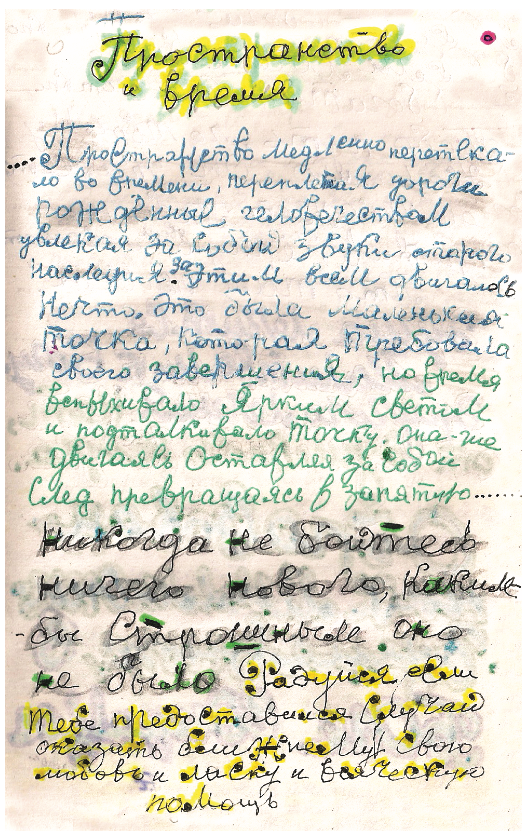 Пространство
и время
....Пространство медленно перетека-
ло во времени, переплетая дороги
рождённые человечеством
увлекая за собой звуки старого
наследия. за этим всем двигалось
Нечто. Это была маленькая
точка, которая требовала
своего завершения, но время
вспыхивало Ярким светом
и подталкивало точку. она-же
двигаясь Оставляя за собой
След превращаясь в запятую......
никогда не бойтесь
ничего нового, каким
-бы Страшным оно
не было Радуйся, если
тебе предоставился Случай
оказать свою
любовь и ласку и всяческую
помощь